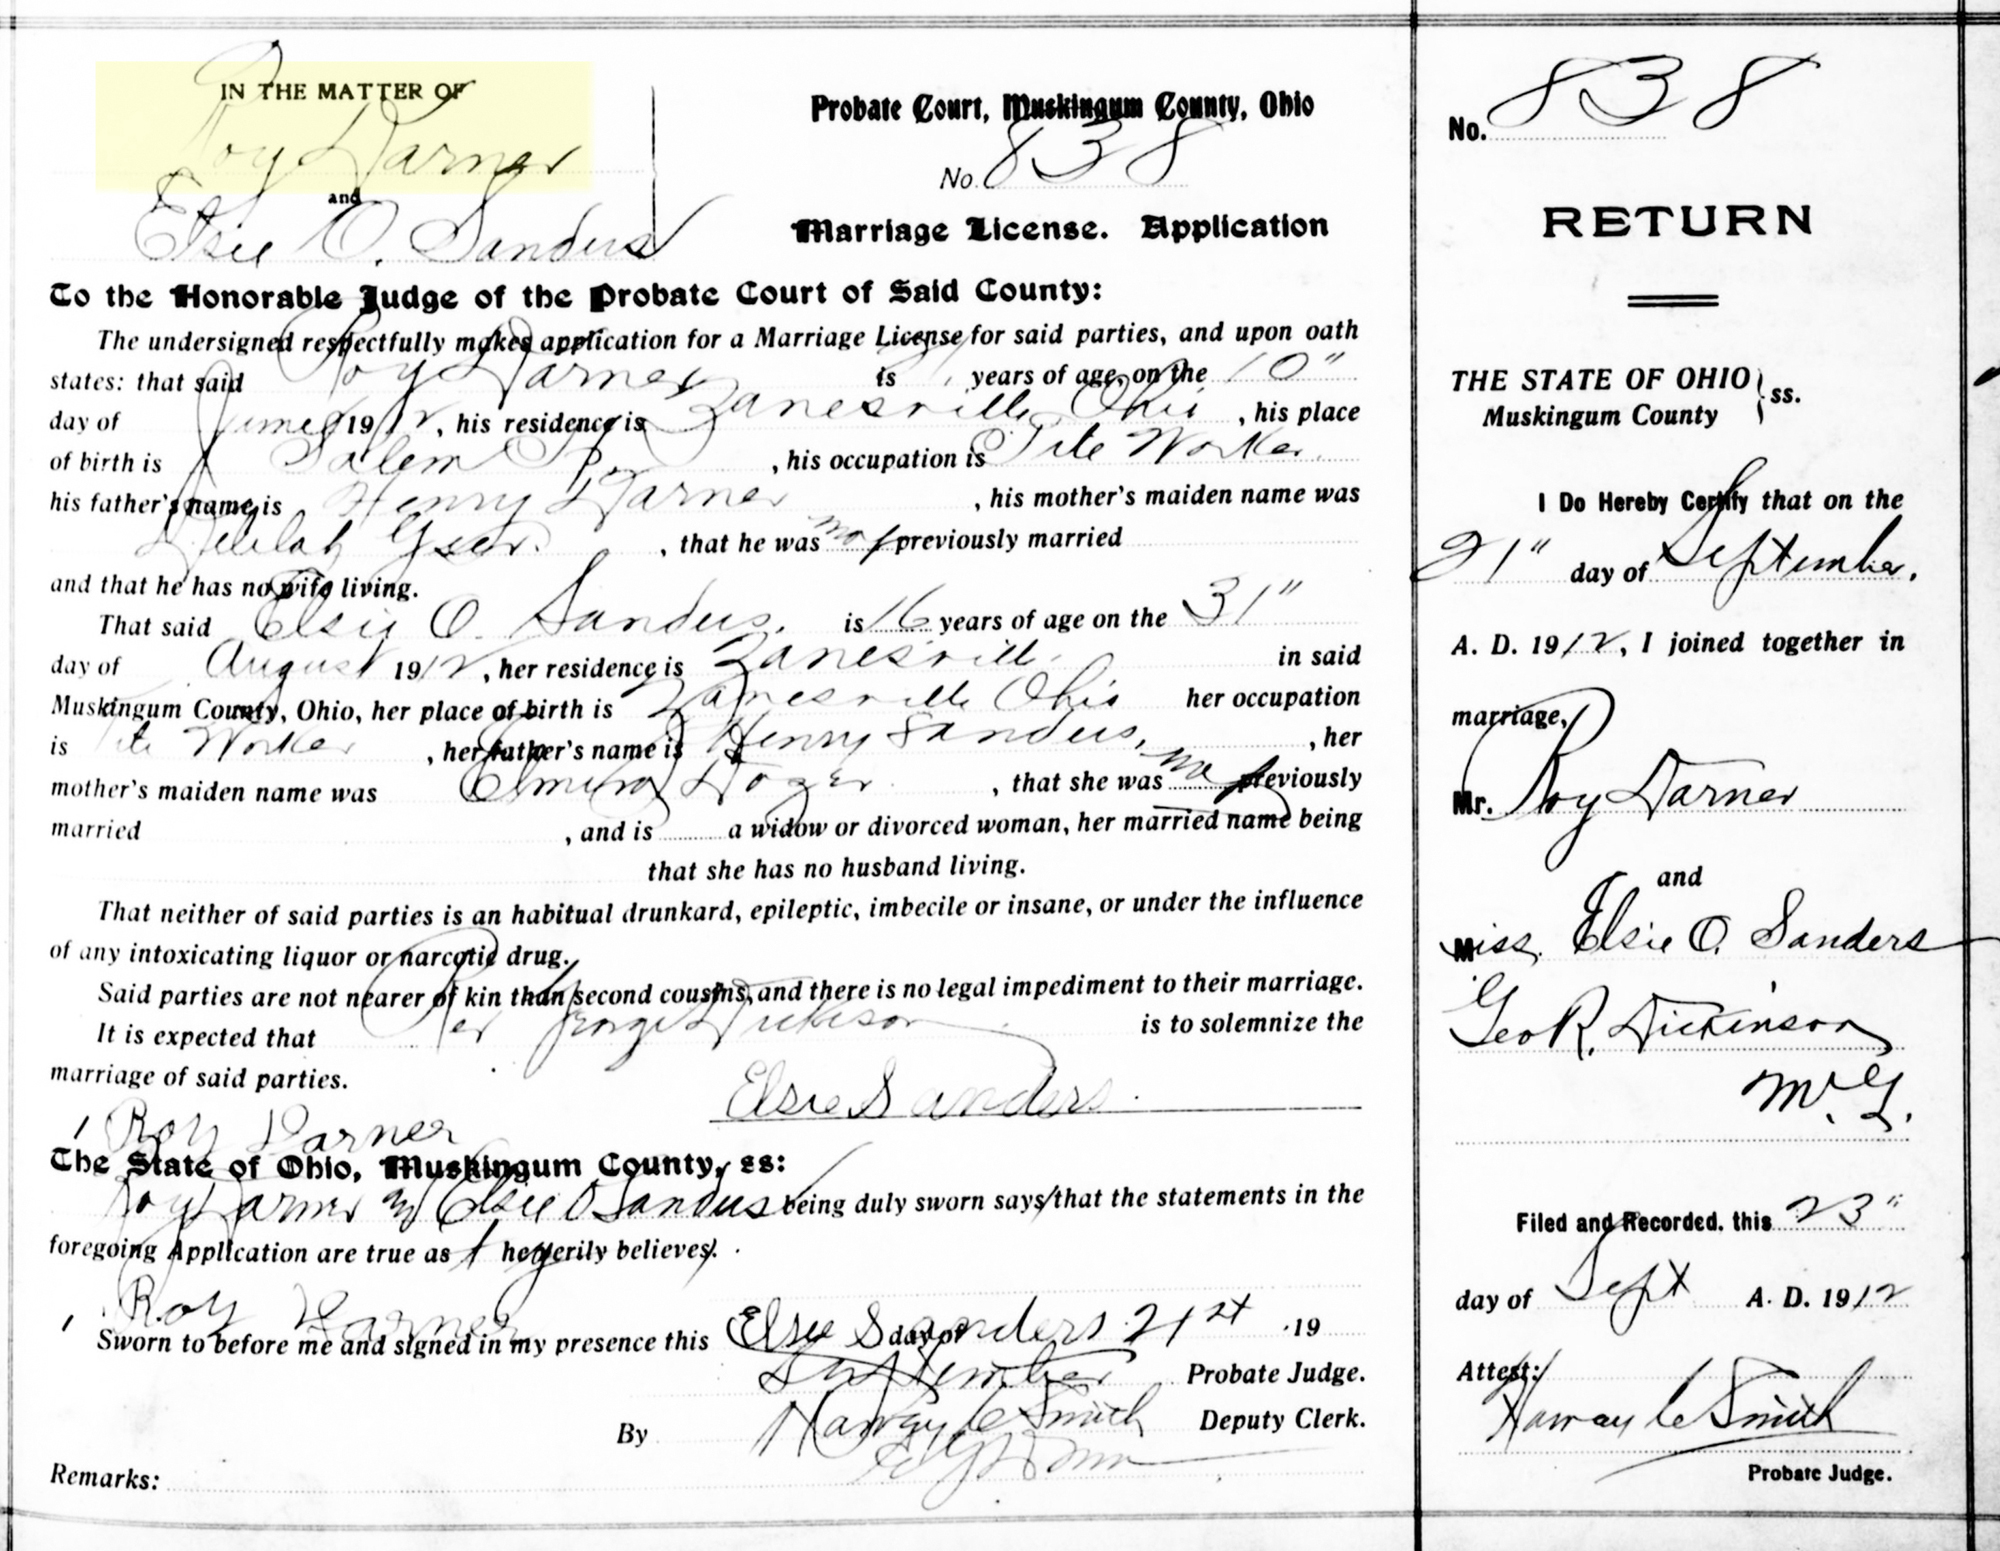 IN THE MATTER OF
Roy Darner
and
Elsie O. Sanders
Probate Court, Muskingum County, Ohio
No. 838
Marriage License. Application
To the Honorable Judge of the Probate Court of Said County:
The undersigned respectfully makes application for a Marriage License for said parties, and upon oath
states: that said Roy Darner is years of age, on the 10"
day of June 1912, his residence is Zanesville Ohio, his place
of birth is Salem, his occupation is Tile Worker
his father's name is Henry Darner, his mother's maiden name was
Delilah, that he was not previously married
and that he has no wife living.
That said Elsie O. Sanders. is 16 years of age on the 31"
day of August 1912, her residence is Zanesville in said
Muskingum County, Ohio, her place of birth is Zanesville Ohio her occupation
is Tile Worker, her father's name is Henry Sanders, her
mother's maiden name was Elmira, that she was not previously
married , and is a widow or divorced woman, her married name being
that she has no husband living.
That neither of said parties is an habitual drunkard, epileptic, imbecile or insane, or under the influence
of any intoxicating liquor or narcotic drug.
Said parties are not nearer of kin than second cousins, and there is no legal impediment to their marriage.
It is expected that Rev George Dickison is to solemnize the
marriage of said parties.
Elsie Sanders.
Roy Darner
The State of Ohio, Muskingum County, ss:
Roy Darner and Elsie O Sanders being duly sworn says that the statements in the
foregoing Application are true as he verily believes.
Roy Darner
Elsie Sanders
Sworn to before me and signed in my presence this 21st day of 19
September Probate Judge.
By Harvey C Smith Deputy Clerk.
Remarks:
No. 838
RETURN
THE STATE OF OHIO
Muskingum County ss.
I Do Hereby Certify that on the
21" day of September.
A. D. 1912, I joined together in
marriage,
Mr. Roy Darner
and
Miss. Elsie O. Sanders
Geo R. Dickinson
M. G.
Filed and Recorded, this 23"
day of Sept A. D. 1912
Attest:
Harvey C Smith
Probate Judge.